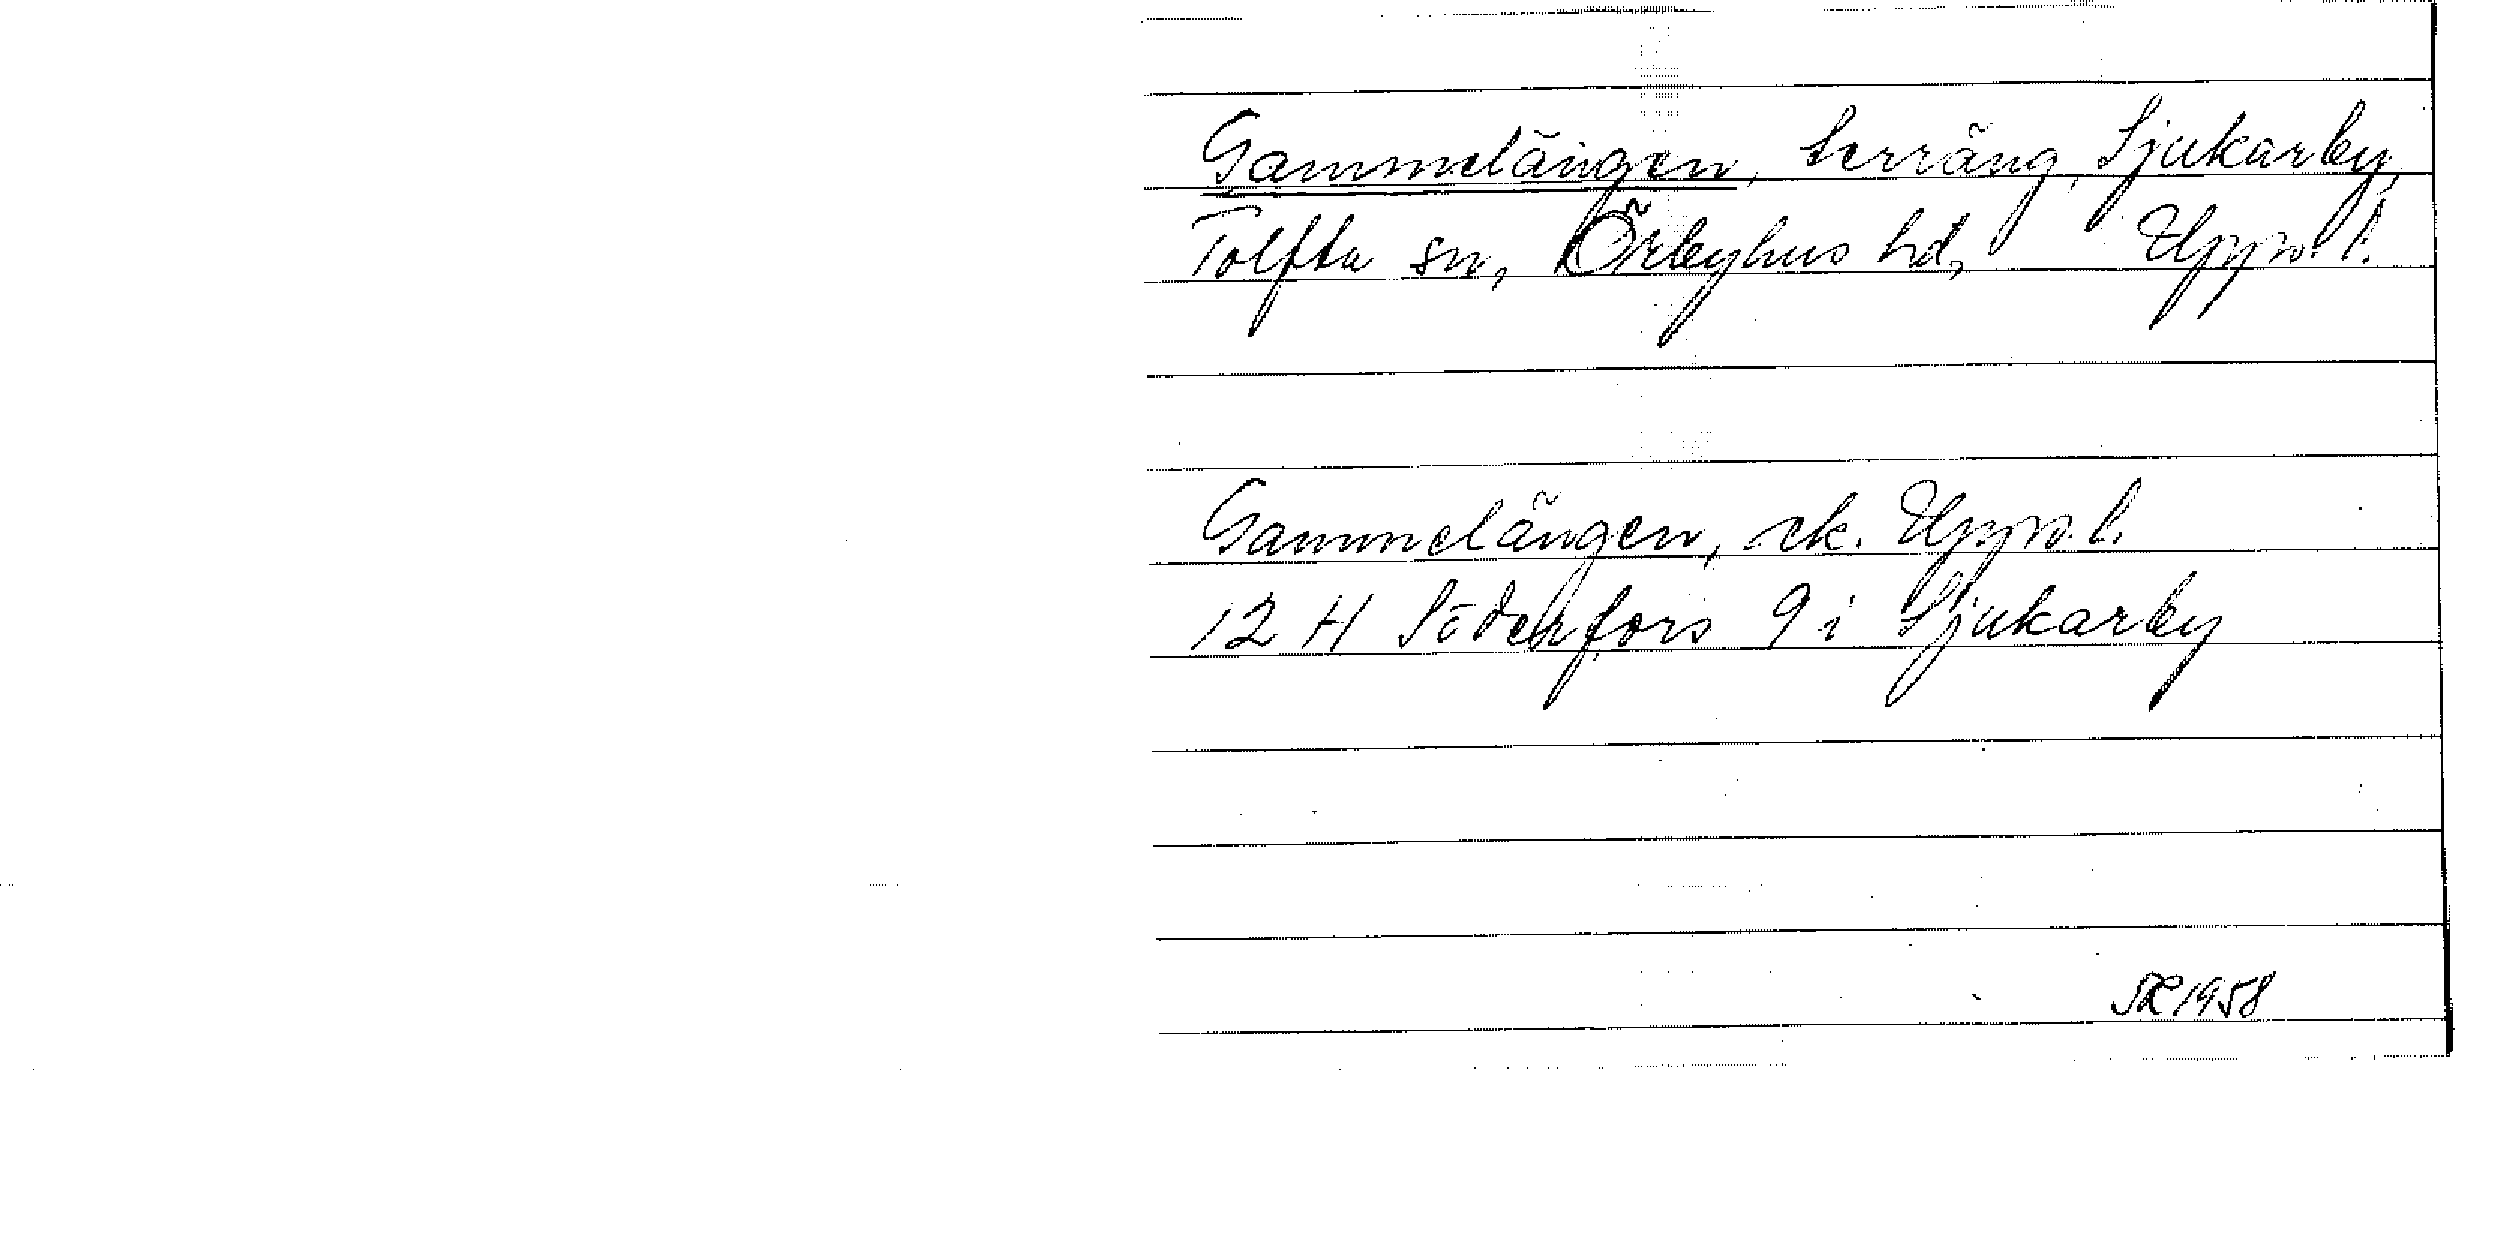 Gammelängen, terräng, Sjukarby,
Tolfta sn, Örbyhus hd, Upps. l.
Gammelängen, ek. Upps. l.
12 H Söderfors 9 i Sjukarby
1958